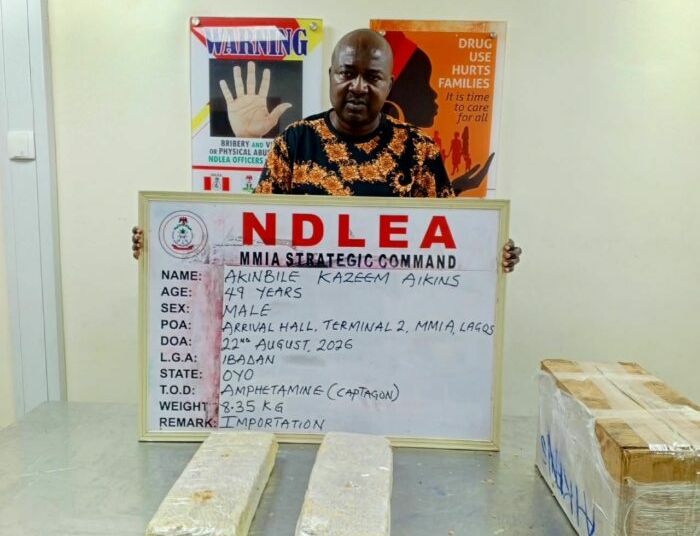 WARNING
BRIBERY AND
OR PHYSICAL
NDLEA OFFICERS
DRUG
USE
HURTS
FAMILIES
It is time
to care
for all
NDLEA
MMIA STRATEGIC COMMAND
NAME: AKINBILE KAZEEM AIKINS
AGE: 49 YEARS
SEX: MALE
POA: ARRIVAL HALL, TERMINAL 2, MMIA, LAGOS
DOA: 22ND AUGUST, 2026
L.G.A: IBADAN
STATE: OYO
T.O.D: AMPHETAMINE (CAPTAGON)
WEIGHT 8.35 KG
REMARK: IMPORTATION